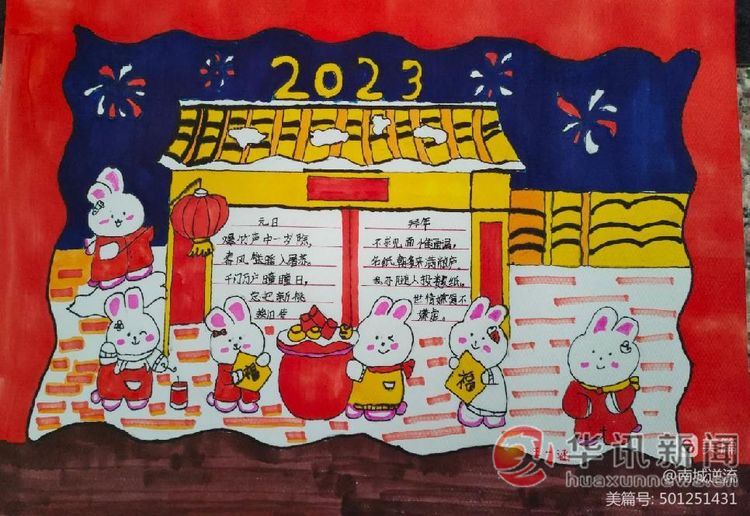 2023
元日
爆竹声中一岁除,
春风送暖入屠苏。
千门万户曈曈日,
总把新桃
换旧符
拜年
不求见面惟通谒,
名纸朝来满敝庐。
我亦随人投数纸,
世情嫌简不
嫌虚。
福
福
华讯新闻
huaxunnews.cn
@南城逆流
美篇号: 501251431